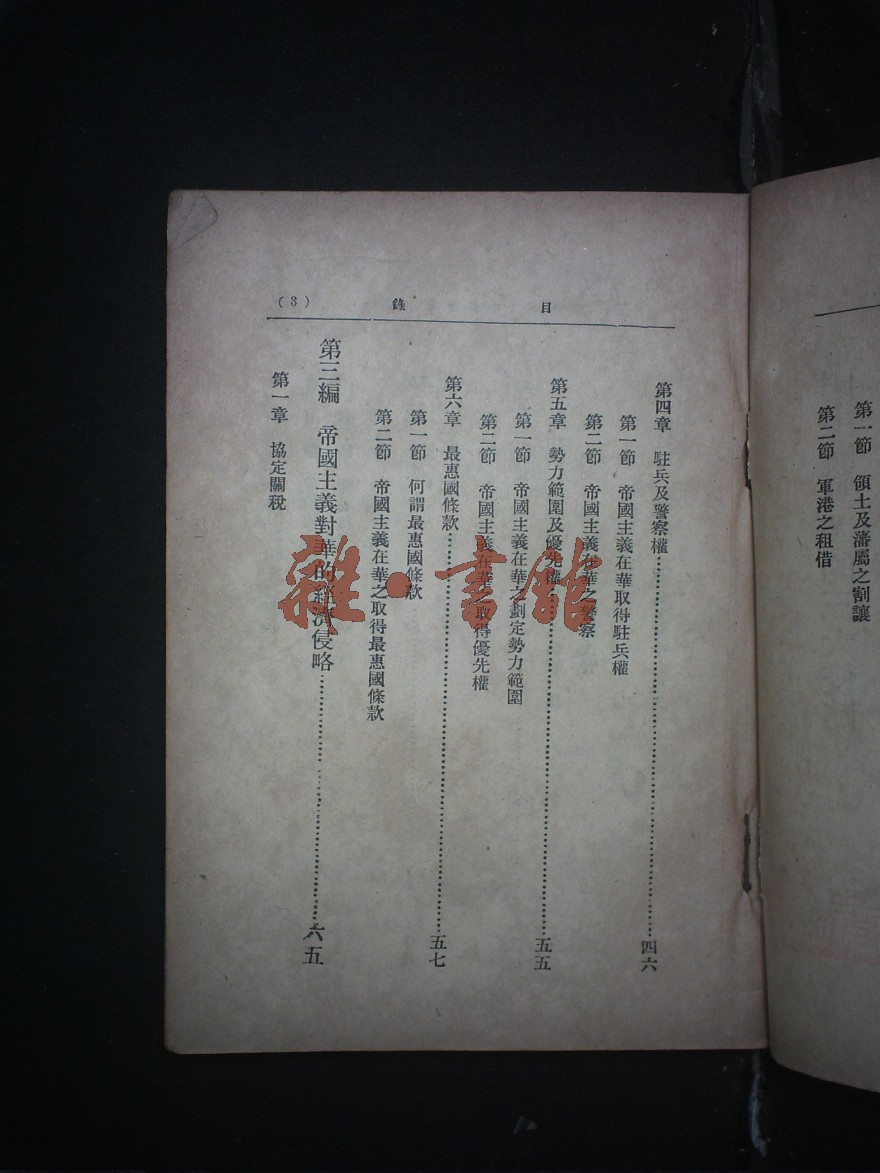 第一節　領土及藩屬之割讓
第二節　軍港之租借
目錄（3）
第四章　駐兵及警察權…………四六
第一節　帝國主義在華取得駐兵權
第二節　帝國主義在華之警察
第五章　勢力範圍及優先權…………五五
第一節　帝國主義在華之劃定勢力範圍
第二節　帝國主義在華之取得優先權
第六章　最惠國條款…………五七
第一節　何謂最惠國條款
第二節　帝國主義在華之取得最惠國條款
第三編　帝國主義對華的經濟侵略…………六五
第一章　協定關稅
雜·書館